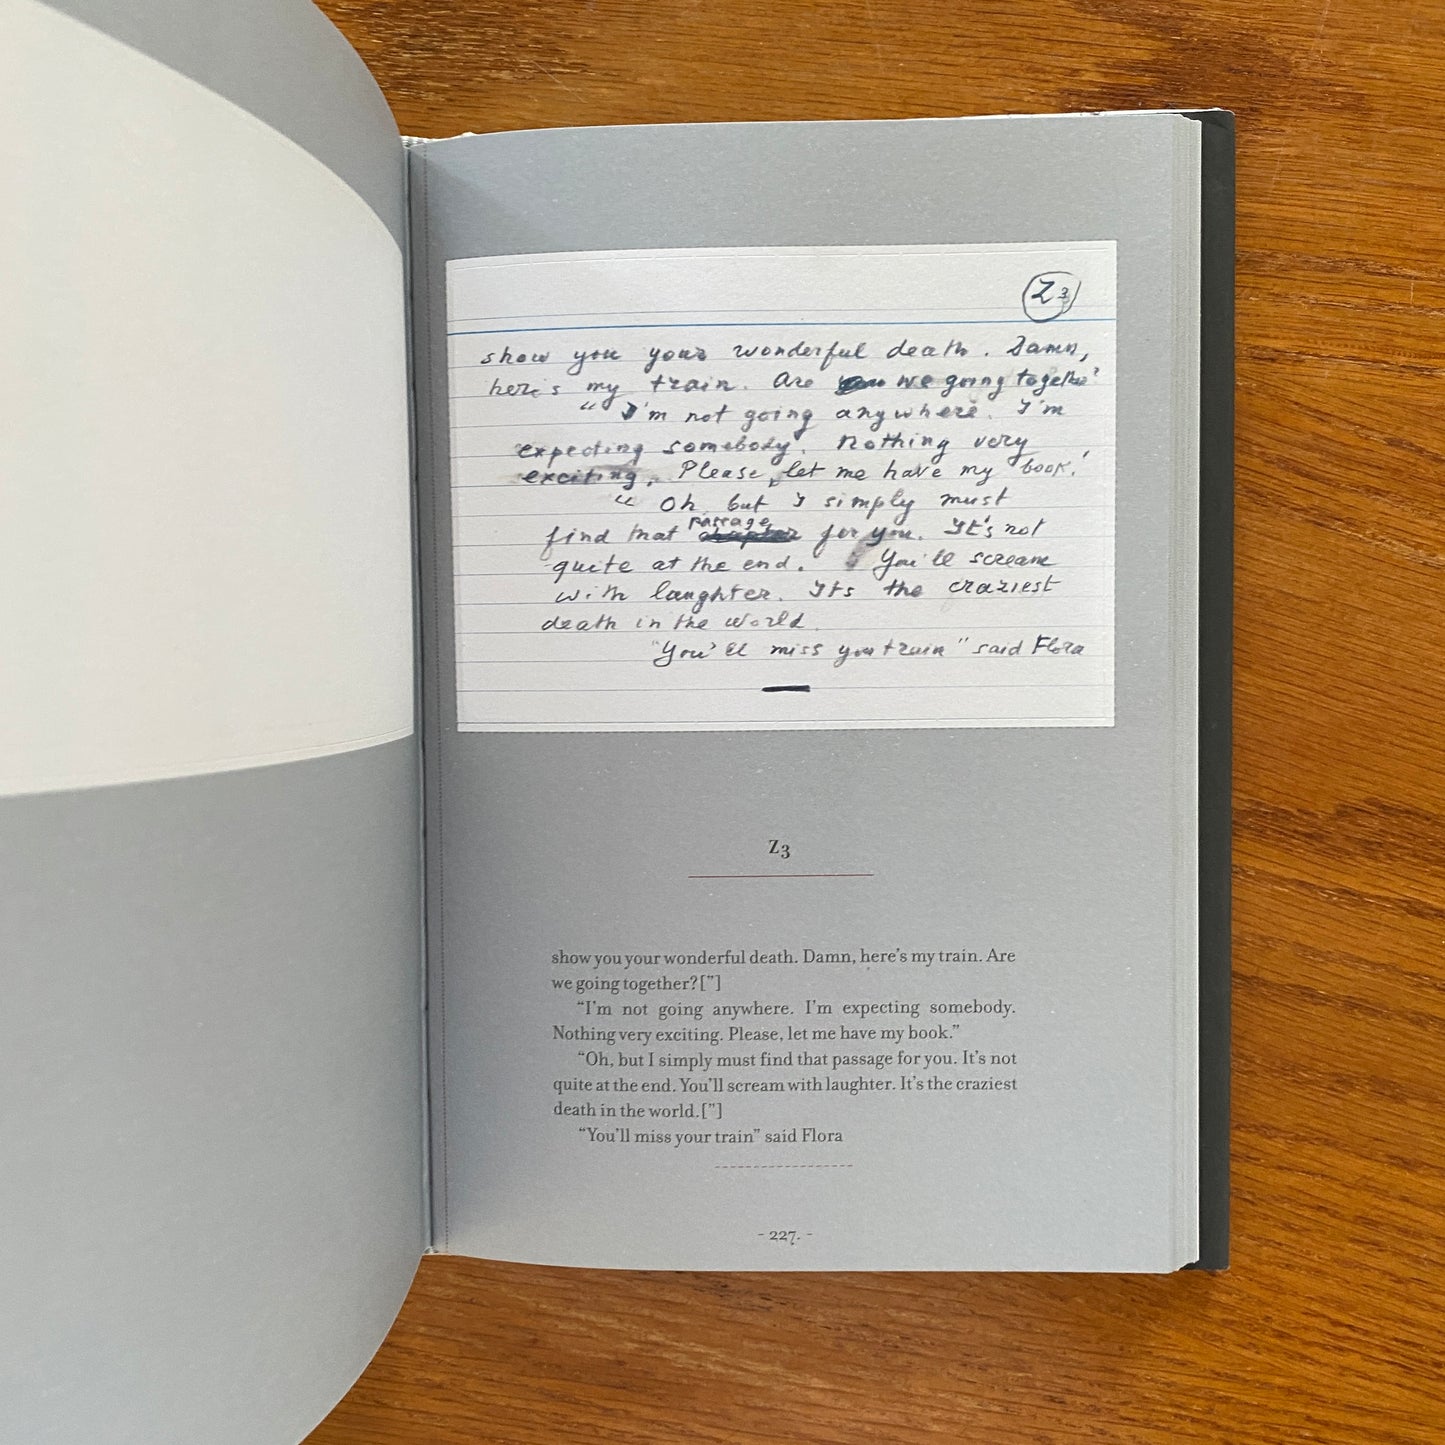 Z3
show you your wonderful death. Damn,
here's my train. Are we going together?
“I'm not going anywhere. I'm
expecting somebody. Nothing very
exciting. Please, let me have my book."
“Oh, but I simply must
passage
find that chapter for you. It's not
quite at the end. You'll scream
with laughter. Its the craziest
death in the world.
"You'll miss you train" said Flora
Z3
show you your wonderful death. Damn, here’s my train. Are
we going together?[”]
“I’m not going anywhere. I’m expecting somebody.
Nothing very exciting. Please, let me have my book.”
“Oh, but I simply must find that passage for you. It’s not
quite at the end. You’ll scream with laughter. It’s the craziest
death in the world.[”]
“You’ll miss your train” said Flora
- 227. -